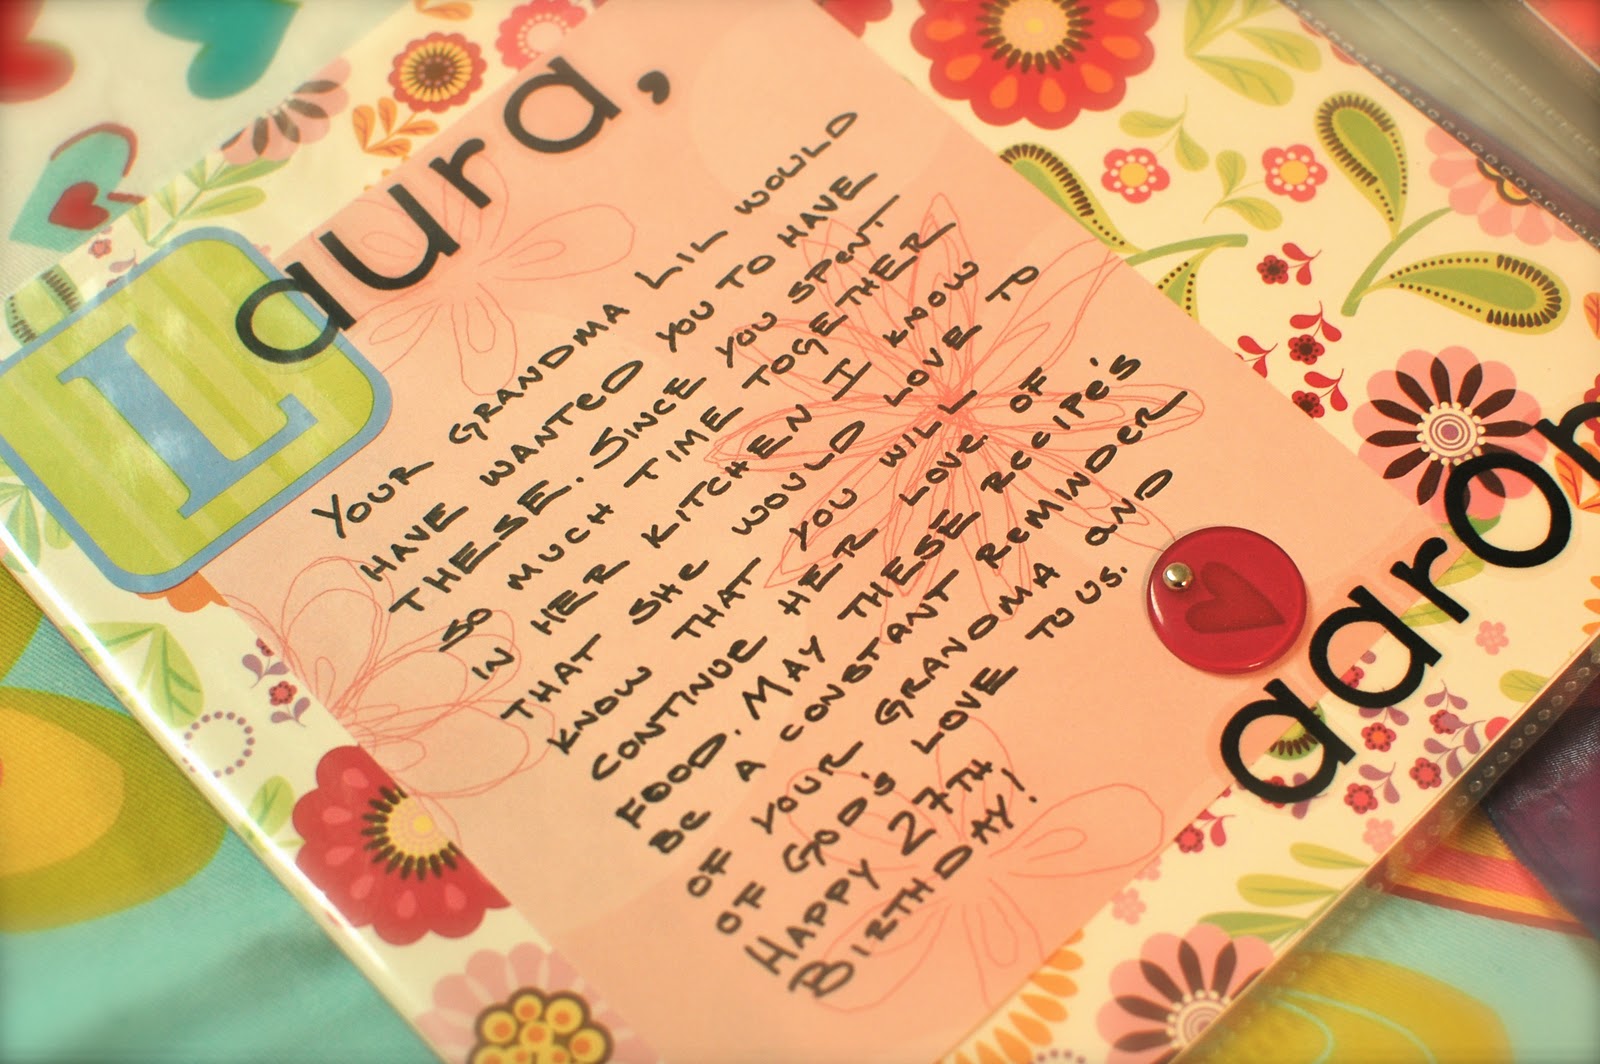 Laura,
YOUR GRANDMA LIL WOULD
HAVE WANTED YOU TO HAVE
THESE. SINCE YOU SPENT
SO MUCH TIME TOGETHER
IN HER KITCHEN I KNOW
THAT SHE WOULD LOVE TO
KNOW THAT YOU WILL
CONTINUE HER LOVE OF
FOOD. MAY THESE RECIPE'S
BE A CONSTANT REMINDER
OF YOUR GRANDMA AND
OF GOD'S LOVE TO US.
HAPPY 27TH
BIRTHDAY!
aaron